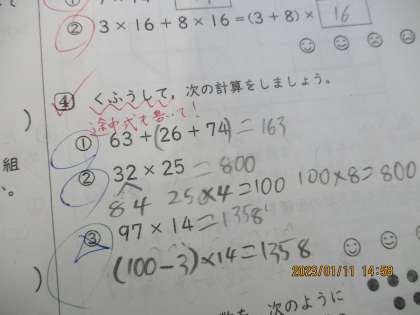 ② 3×16+8×16=(3+8)×16
4 くふうして、次の計算をしましょう。
途中式を書いて!
① 63+(26+74)=163
② 32×25=800
8 4 25×4=100 100×8=800
③ 97×14=1358
(100-3)×14=1358
組
2023/01/11 14:58
次のように